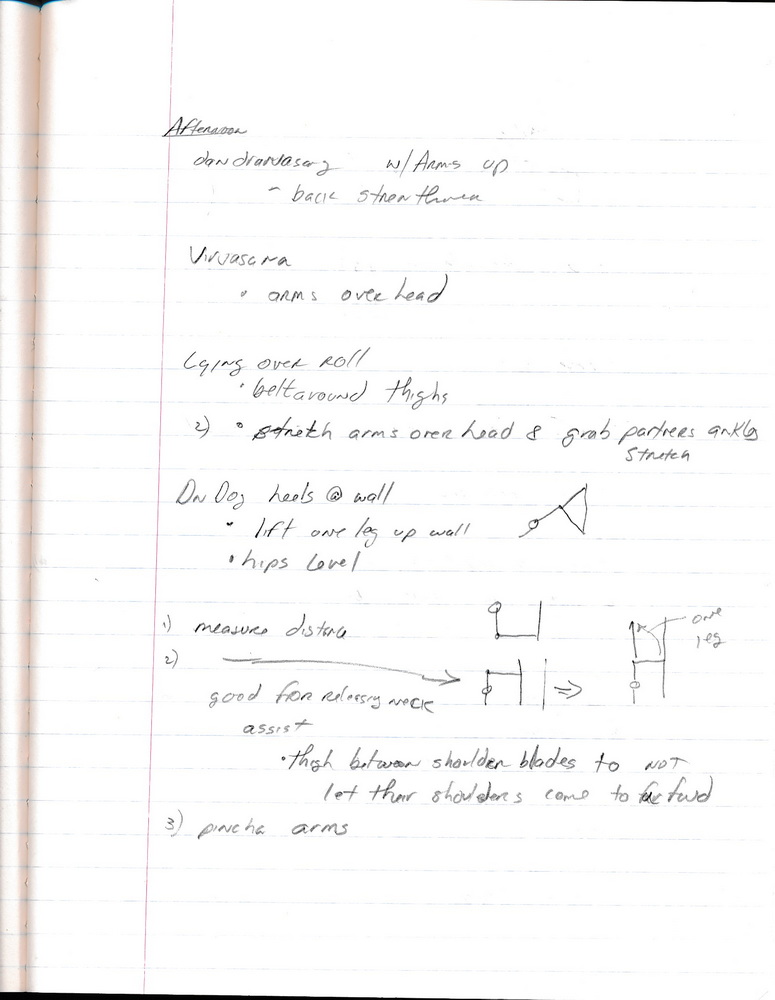 Afternoon
w/ Arms up
- back
Virvasana
• arms over head
Lying over Roll
• belt around thighs
2) • stretch arms over head & grab partners ankles
stretch
Dn Dog heels @ wall
• lift one leg up wall
• hips level
1) measure distance
one
leg
2)
good for releasing neck
assist
• thigh between shoulder blades to NOT
let their shoulders come to far fwd
3) pincha arms